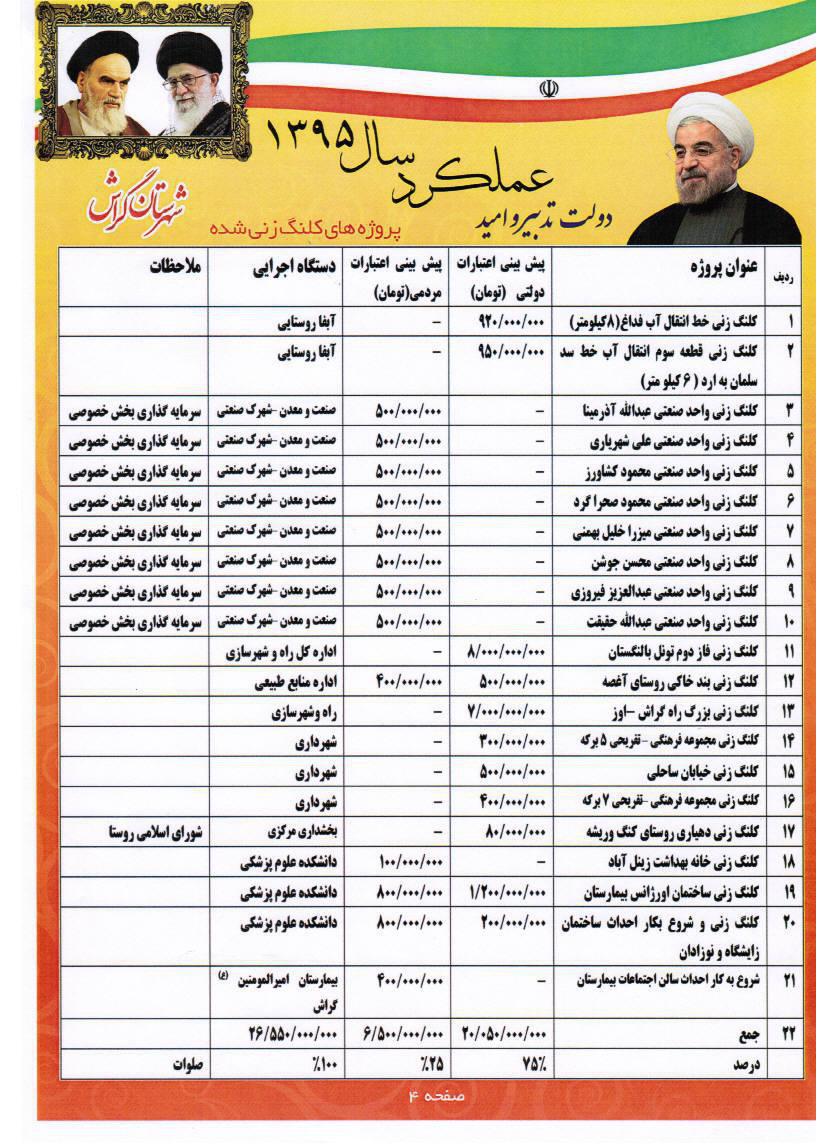 عملکرد سال ۱۳۹۵
دولت تدبیر و امید
شهرستان گراش
پروژه های کلنگ زنی شده
ردیف عنوان پروژه پیش بینی اعتبارات دولتی (تومان) پیش بینی اعتبارات مردمی(تومان) دستگاه اجرایی ملاحظات
۱ کلنگ زنی خط انتقال آب فداغ(۸کیلومتر) ۹۲۰/۰۰۰/۰۰۰ – آبفا روستایی
۲ کلنگ زنی قطعه سوم انتقال آب خط سد ۹۵۰/۰۰۰/۰۰۰ – آبفا روستایی
سلمان به ارد ( ۶ کیلو متر)
۳ کلنگ زنی واحد صنعتی عبدالله آذرمینا – ۵۰۰/۰۰۰/۰۰۰ صنعت و معدن –شهرک صنعتی سرمایه گذاری بخش خصوصی
۴ کلنگ زنی واحد صنعتی علی شهریاری – ۵۰۰/۰۰۰/۰۰۰ صنعت و معدن –شهرک صنعتی سرمایه گذاری بخش خصوصی
۵ کلنگ زنی واحد صنعتی محمود کشاورز – ۵۰۰/۰۰۰/۰۰۰ صنعت و معدن –شهرک صنعتی سرمایه گذاری بخش خصوصی
۶ کلنگ زنی واحد صنعتی محمود صحرا گرد – ۵۰۰/۰۰۰/۰۰۰ صنعت و معدن –شهرک صنعتی سرمایه گذاری بخش خصوصی
۷ کلنگ زنی واحد صنعتی میزرا خلیل بهمنی – ۵۰۰/۰۰۰/۰۰۰ صنعت و معدن –شهرک صنعتی سرمایه گذاری بخش خصوصی
۸ کلنگ زنی واحد صنعتی محسن جوشن – ۵۰۰/۰۰۰/۰۰۰ صنعت و معدن –شهرک صنعتی سرمایه گذاری بخش خصوصی
۹ کلنگ زنی واحد صنعتی عبدالعزیز فیروزی – ۵۰۰/۰۰۰/۰۰۰ صنعت و معدن –شهرک صنعتی سرمایه گذاری بخش خصوصی
۱۰ کلنگ زنی واحد صنعتی عبدالله حقیقت – ۵۰۰/۰۰۰/۰۰۰ صنعت و معدن –شهرک صنعتی سرمایه گذاری بخش خصوصی
۱۱ کلنگ زنی فاز دوم تونل بالنگستان ۸/۰۰۰/۰۰۰/۰۰۰ – اداره کل راه و شهرسازی
۱۲ کلنگ زنی بند خاکی روستای آغصه ۵۰۰/۰۰۰/۰۰۰ ۴۰۰/۰۰۰/۰۰۰ اداره منابع طبیعی
۱۳ کلنگ زنی بزرگ راه گراش –اوز ۷/۰۰۰/۰۰۰/۰۰۰ – راه وشهرسازی
۱۴ کلنگ زنی مجموعه فرهنگی –تفریحی ۵ برکه ۳۰۰/۰۰۰/۰۰۰ – شهرداری
۱۵ کلنگ زنی خیابان ساحلی ۵۰۰/۰۰۰/۰۰۰ – شهرداری
۱۶ کلنگ زنی مجموعه فرهنگی –تفریحی ۷ برکه ۴۰۰/۰۰۰/۰۰۰ – شهرداری
۱۷ کلنگ زنی دهیاری روستای کنگ وریشه ۸۰/۰۰۰/۰۰۰ – بخشداری مرکزی شورای اسلامی روستا
۱۸ کلنگ زنی خانه بهداشت زینل آباد – ۱۰۰/۰۰۰/۰۰۰ دانشکده علوم پزشکی
۱۹ کلنگ زنی ساختمان اورژانس بیمارستان ۱/۲۰۰/۰۰۰/۰۰۰ ۸۰۰/۰۰۰/۰۰۰ دانشکده علوم پزشکی
۲۰ کلنگ زنی و شروع بکار احداث ساختمان ۲۰۰/۰۰۰/۰۰۰ ۸۰۰/۰۰۰/۰۰۰ دانشکده علوم پزشکی
زایشگاه و نوزادان
۲۱ شروع به کار احداث سالن اجتماعات بیمارستان – ۴۰۰/۰۰۰/۰۰۰ بیمارستان امیرالمومنین (ع)
گراش
۲۲ جمع ۲۰/۰۵۰/۰۰۰/۰۰۰ ۶/۵۰۰/۰۰۰/۰۰۰ ۲۶/۵۵۰/۰۰۰/۰۰۰
درصد ۷۵% ٪۲۵ ٪۱۰۰ صلوات
صفحه ۴